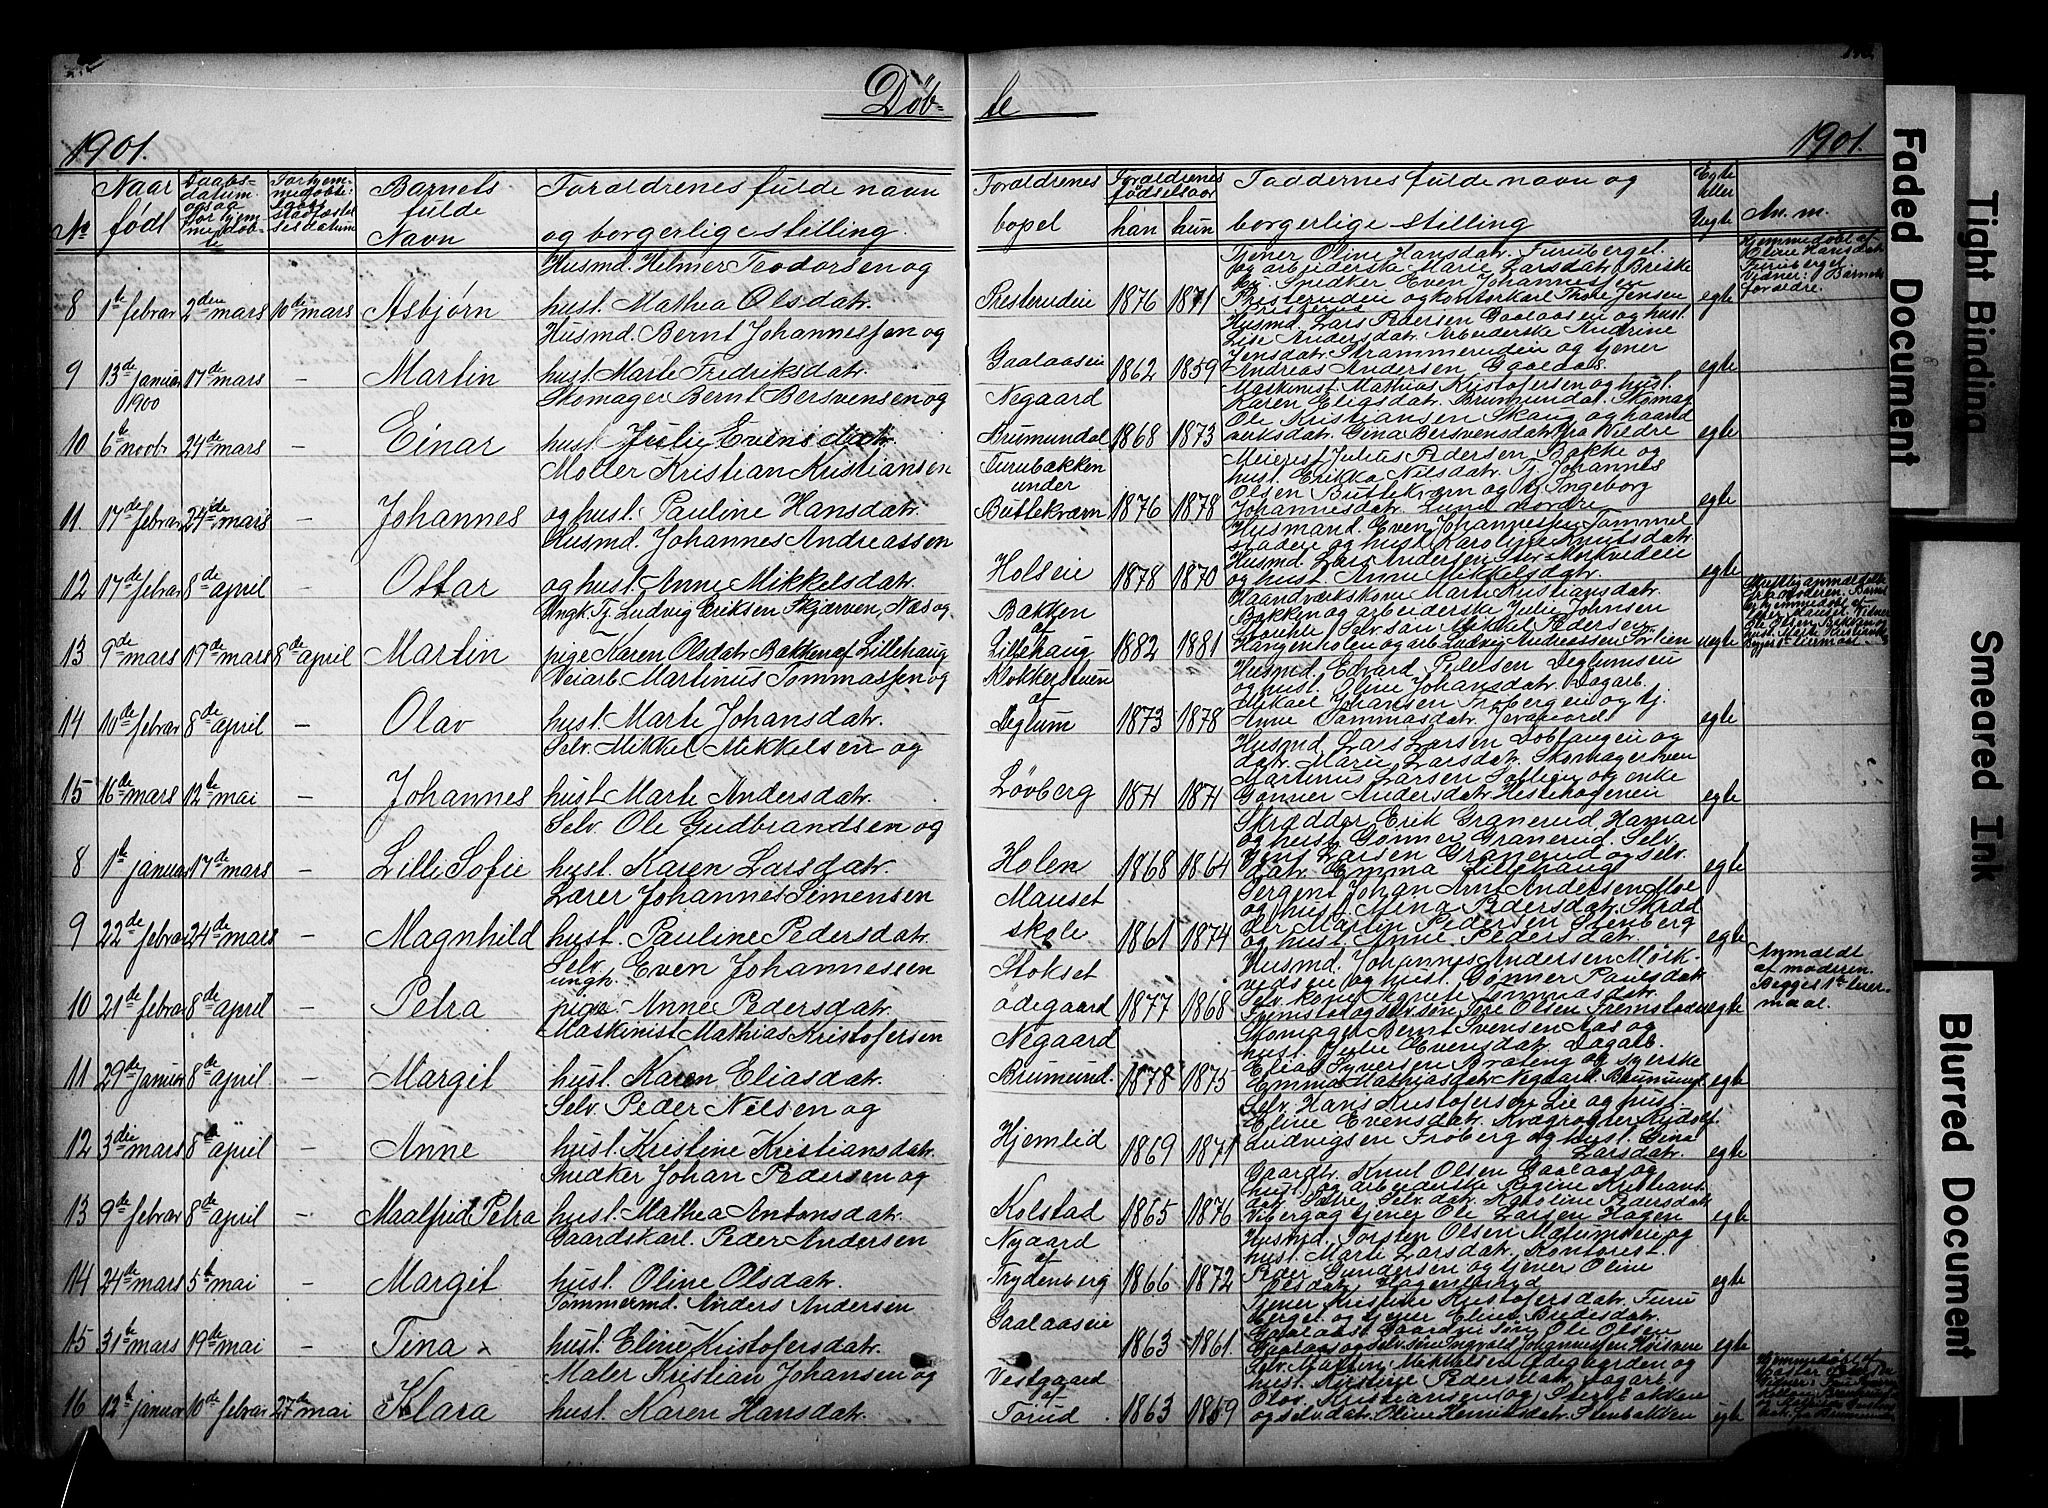 Döb-
te
1901.
1901.
No
Naar født
Daabs-datum ogsaa for hjem-medøb-te
For hjem-medøbte: Daabs stadfæstel sesdatum
Barnets fulde Navn
Forældrenes fulde navn og borgerlige stilling.
Forældrenes bopel
Forældrenes fødselsaar
han
hun
Faddernes fulde navn og borgerlige stilling
Egte eller Uegte
An. m.
8 1te febrar 2den mars 10de mars Asbjørn
Husmd. Helmer Teodorsen og
hust. Mathea Olsdatr.
Presterudeie 1876 1871
Tjener Oline Hansdatr. Furuberget.
og arbeiderske Marie Larsdatr. Briske
bye. Snedker Even Johannessen
Presterudeie og kontorkarl Thore Jensen
egte
Hjemmedøbt af
Oline Hansdatr.
Furuberget.
Vidner: Barnets
forældre.
9 13de januar 17de mars — Martin
Husmd. Bernt Johannessen og
hust. Marte Fredriksdatr.
Gaalaaseie 1862 1859
Husmd. Lars Pedersen Gaalaaseie og hust.
Lise Andersdatr. Arbeiderske Andrine
Jensdatr. Strammerudeie og tjener
Andreas Andersen Gaalaas.
egte
1900
10 6te novbr 24de mars — Einar
Skomager Bernt Bersvensen og
hust. Julie Evensdatr.
Nygaard
Brumundal 1868 1873
Maskinist Mathias Kristofersen og hust.
Karen Eliasdatr. Brumundal. Skomag
Ole Kristiansen Skaug og haand
verksdatr. Gina Bersvensdatr. fra Vildre
egte
11 17de febrar 24de mars — Johannes
Møller Kristian Kristiansen
og hust. Pauline Hansdatr.
Furubakken
under
Buttekværn 1876 1878
Meierist Julius Pedersen Bakke og
hust. Erikka Nilsdatr. Tj. Johannes
Olsen Buttekværn og tj. Ingeborg
Johannesdatr. Lund nordre
egte
12 17de febrar 8de april — Ottar
Husmd. Johannes Andreassen
og hust. Anne Mikkelsdatr.
Holseie 1878 1870
Husmand. Even Johannessen Tommel
stadeie og hust. Karoline Knutsdatr.
Husmd. Lars Andersen
og hust. Anne Mikkelsdatr.
egte
13 9de mars 17de mars 8de april Martin
Ungk. Tj. Ludvig Eriksen Skjærven, Næs og
pige Karen Olsdatr. Bakken af Lillehaug
Bakken
af
Lillehaug 1882 1881
Haandverkskone Marte Kristiansdatr.
Bakken og arbeiderske Julie Johnsen
Mikkel Pedersen
Hangenholen og arb. Ludvig Andreassen
uegte
14 10de febrar 8de april — Olav
Veiarb. Martinus Tommassen og
hust. Marte Johansdatr.
Klokkerstuen
af
Deglum 1873 1878
Husmd. Edvard Pedersen Deglumseie
og hust. Eline Johansdatr. Dagarb.
Mikael Johansen Frøbergeie og tj.
Anne Tommasdatr.
egte
15 16de mars 12te mai — Johannes
Selv. Mikkel Mikkelsen og
hust. Marte Andersdatr.
Løvberg 1874 1874
Husmd. Lars Larsen og
datr. Marie Larsdatr. Skomagersven
Martinus Larsen og enke
Gønner Andersdatr. Hestehageneie
egte
8 1te januar 17de mars — Lilli Sofie
Selv. Ole Gudbrandsen og
hust. Karen Larsdatr.
Holen 1868 1864
Skrædder Erik Granerud, Hamar
og hust. Gønner Granerud. Selv.
Jens Larsen Granerud og selv.
datr. Emma Lillehaug
egte
9 22de febrar 24de mars — Magnhild
Lærer Johannes Simensen
hust. Pauline Pedersdatr.
Mauset
skole 1861 1874
Sergent Johan Arnt Andersen Moe
og hust. Pedersdatr. Skræd
der Martin Pedersen Stenberg
og hust. Anne Pedersdatr.
egte
10 21de febrar 8de april — Petra
Selv. Even Johannessen
ungk.
pige Anne Pedersdatr.
Stokset
ødegaard 1877 1868
Husmd. Johannes Andersen Mørk-
vedseie og hust. Gønner Paulsdatr.
Selv. kone Agnete Tommasdatr.
Fremstad og selv. søn Tore Olsen Fremstad
uegte
Anmeldt
af moderen.
Begges 1te leier-
maal.
11 29de januar 8de april — Margit
Maskinist Mathias Kristofersen
hust. Karen Eliasdatr.
Nygaard
Brumund. 1878 1875
Skomager Bernt Svensen Aas og
hust. Julie Evensdatr. Dagarb.
Elias Syversen Bråteng og syerske
Emma Mathiasdatr. Nygaard. Brumundl
egte
12 3die mars 8de april — Anne
Selv. Peder Nilsen og
hust. Kristine Kristiansdatr.
Hjemlid 1869 1871
Selv. Hans Kristofersen Lie og hust.
Eline Evensdatr. Kvægrøgter Rudolf
Ludvigsen Frøberg og hust. Dina
Larsdatr.
egte
13 9de febrar 8de april — Maalfrid Petra
Snedker Johan Pedersen og
hust. Mathea Antonsdatr.
Kolstad 1865 1876
Gaardbr. Knut Olsen Gaalaas og
hust. og arbeiderske Regine Kristians
datr. Sætre. Selv. datr. Karoline Pedersdatr.
Viberg og tjener Ole Larsen Hagen
egte
14 24de mars 5te mai — Margit
Gaardskarl. Peder Andersen
hust. Oline Olsdatr.
Nygaard
af
Frydenberg 1866 1872
Husmd. Torsten Olsen og
hust. Marte Larsdatr. Kontorist.
Peder Gundersen og tjener Oline
Olsdatr.
egte
15 31te mars 19de mai — Tina
Tømmermd. Anders Andersen
hust. Eline Kristofersdatr.
Gaalaaseie
1863 1861
Tjener Kristine Kristofersdatr. Furu
berget og tjener Eline Bredesdatr.
Gaalaas. Ole Olsen
Gaalaas og selv. søn Ingvald Johannessen
egte
16 12te januar 10de febrar 27de mai Klara
Maler Kristian Johansen og
hust. Karen Hansdatr.
Vestgaard
af
Torud 1863 1859
Selv. Martin Mikkelsen Ødegaarden og
hust. Kristine Pedersdatr. Dagarb.
Olof Kristiansen og Stenbakken
og selv. datr. Oline Henriksdatr. Stenbakken
egte
Faded Document
Tight Binding
Smeared Ink
Blurred Document